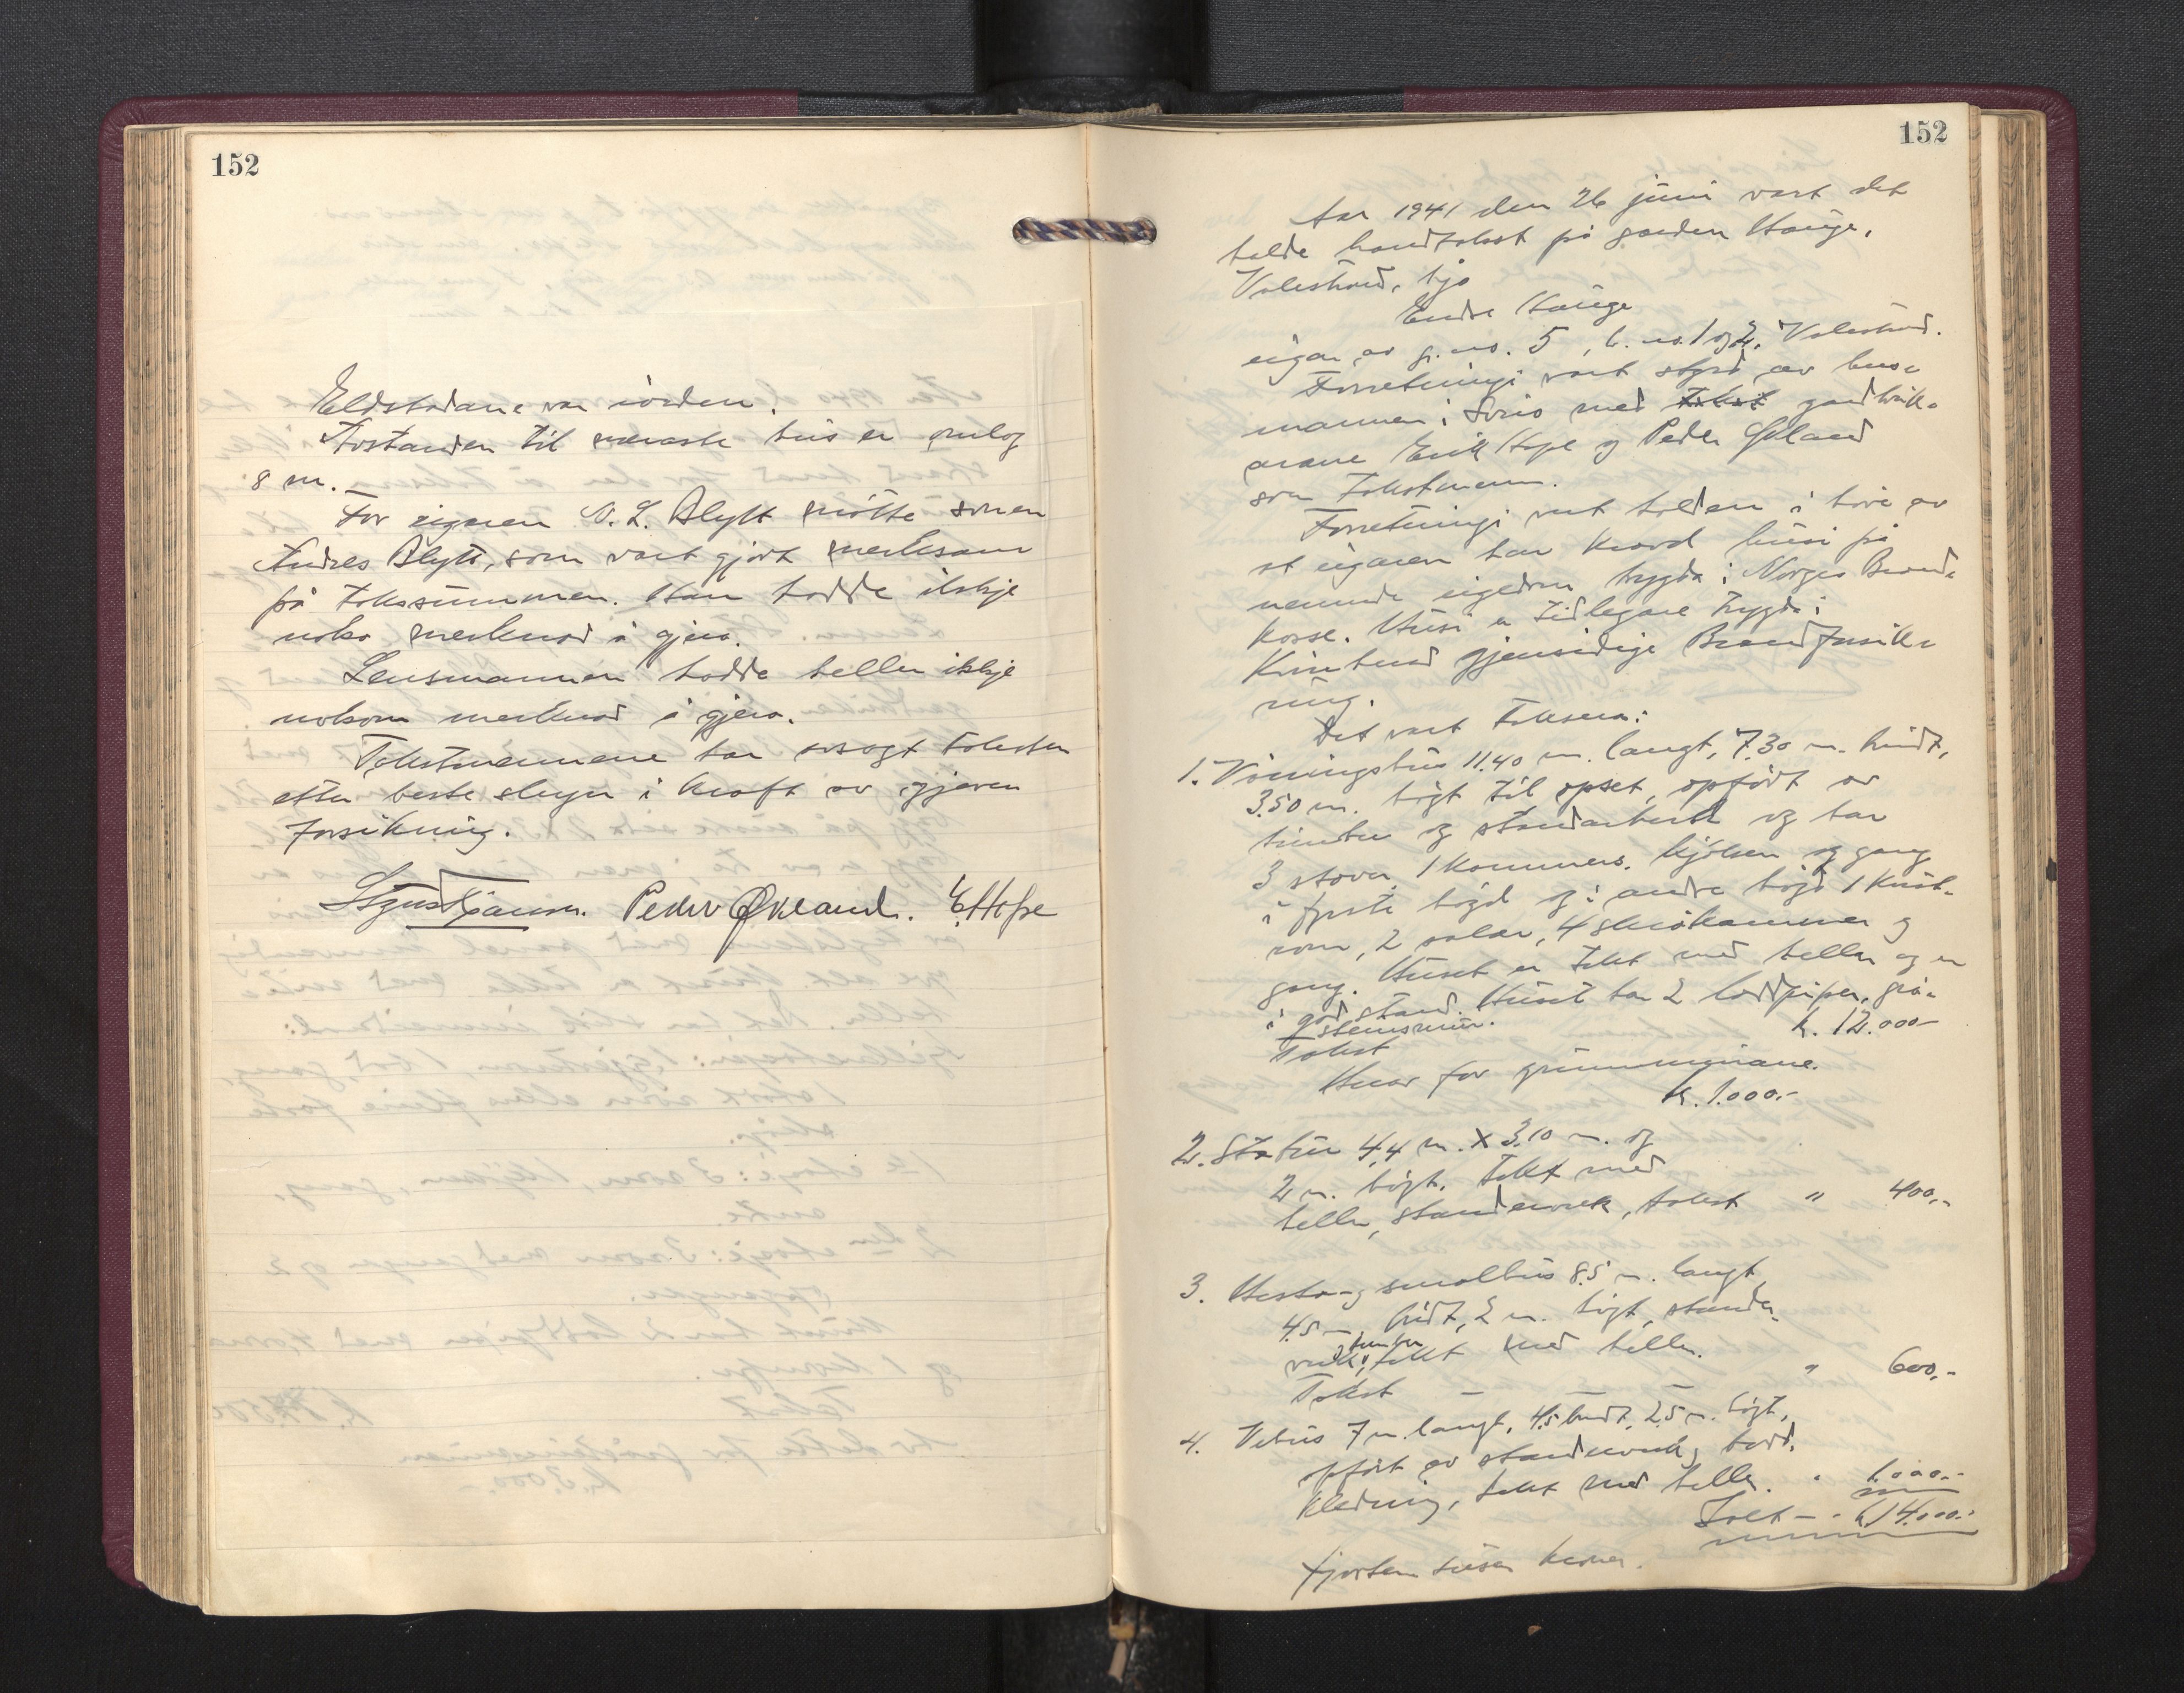 152
Eldstadane var iorden.
Avstanden til næraste hus er umlag
8 m.
For eigaren N. L. Blytt møtte sonen
Andres Blytt, som vart gjort merksam
på takssummen. Han hadde ikkje
noko merknad å gjera.
Lensmannen hadde heller ikkje
nokon merknad å gjera.
Takstmennene har avsagt taksten
etter beste skyn i kraft av gjeven
forsikring.
Peder Økland. E. Hope
152
Aar 1941 den 26 juni vart det
halde brandtakst på garden Hauge,
Valestrand, hjå
Endre Hauge
eigar av g. no. 5, b. no. 1 og 2, Valestrand.
Forretningi vart styrd av lens-
mannen i Sveio med takst gardbruk-
arane Erik Hope og Peder Økland
som takstmenn.
Forretningi vart halden i høve av
at eigaren har kravd husi på
nemnde eigedom trygda i Norges Brand-
kasse. Husi er tidlegare trygda i
Kvinherad gjensidige Brandforsik-
ring.
Det vart taksera:
1. Våningshus 11.40 m. langt, 7.30 m. breidt,
3.50 m. høgt til opset, opført av
timber og standarverk og har
3 stover, 1 kammers, kjøken og gang
i fyrste høgd og i andre høgd 1 kvist-
rom, 2 salar, 4 småkammer og
gang. Huset er tekt med heller og er
i god stand. Huset har 2 loddpiper, grå-
steinsmur.
Takst k. 12.000-
Herav for grunnmurane
k. 1.000.-
2. Stabur 4,4 m. x 3.10 m. og
2 m. høgt. Tekt med
heller, standerverk, takst " 400,-
3. Hesta- og smalhus 8.5 m. langt,
4.5 m breidt, 2 m. høgt, stander-
verk, timber, tekt med heller.
Takst — — " 600,-
4. Vehus 7 m. langt, 4.5 breidt, 2.5 m. høgt,
opført av standerverk, bord-
kledning, tekt med heller. " 1.000.-
Ialt — k. 14.000.-
Fjorten tusen kroner.